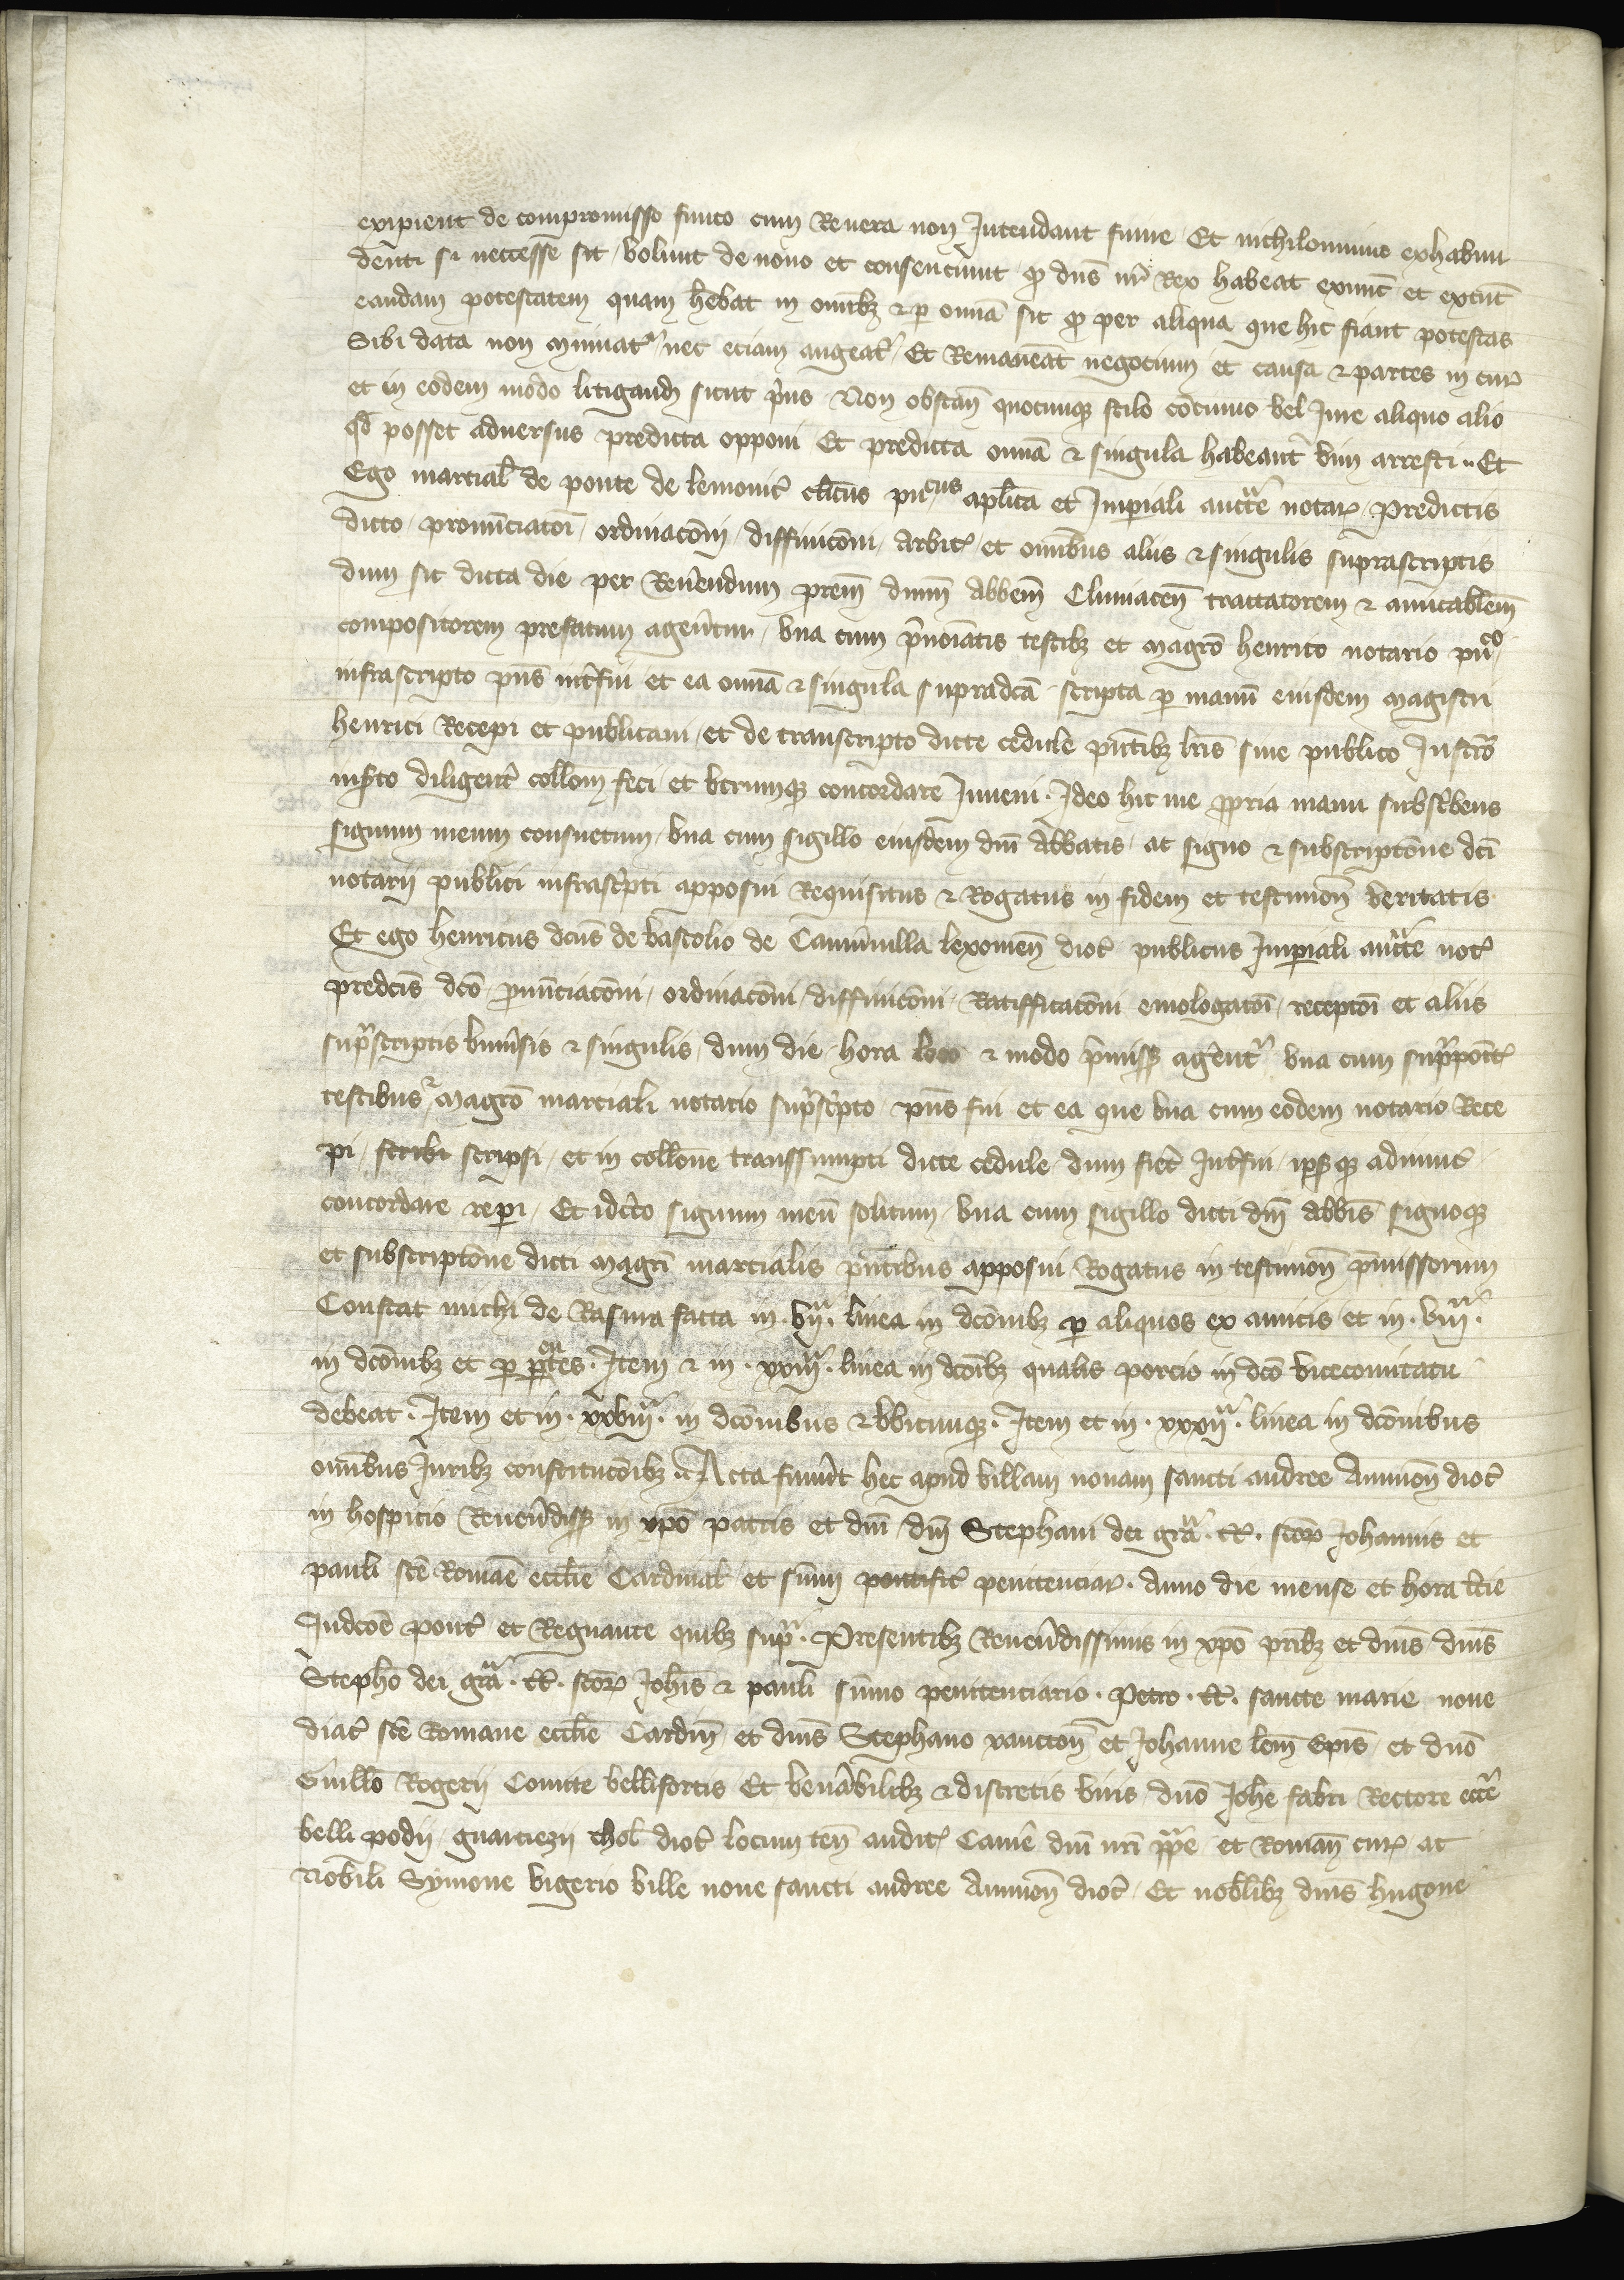 expient de compromisso finito cum Revera non Intendant finire Et nichilominus exhabun
denti si neccesse sit volunt de novo et consenciunt qd dns nr Rex habeat exnunc et extunc
eandam potestatem quam hebat in omibz & p omia sit qd per aliqua que hic fiant potestas
Sibi data non minuatr nec eciam augeatr Et Remaneat negocium et causa & partes in cur
et in eodem modo litigandi sicut prius Non obstan quocunqz stilo cocumo vel Iure aliquo alio
qd posset adversus predicta opponi Et predicta omia & singula habeant vim arresti .. Et
Ego marcial de ponte de lemovic clicus pucus aplica et Imperiali auctte notar predictis
dicto pronunciacoi ordinaconi diffiniconi arbitr et omibus aliis & singulis suprascriptis
dum sic dicta die per Reverendum prem dnum abbem Cluniacen tractatorem & amicablem
compositorem prefatum agerentur una cum prenoiatis testibz et magro henrico notario puco
infrascripto pns interfui et ea omia & singula supradca scripta p manu eiusdem magistri
henrici Recepi et publicavi et de transcripto dicte cedule pntibz lris sive publico Instro
inserto diligent collom feci et utrumqz concordare Inveni . Ideo hic me propria manu subscribens
signum meum consuetum una cum sigillo eiusdem dni abbatis ac signo & subscriptone dci
notarii publici infrascripti apposui Requisitus & Rogatus in fidem et testimon veritatis
Et ego henricus dcus de vastolio de Camivilla lexovien dioc publicus Imperiali auctte not
predcis dco pronunciaconi ordinaconi diffiniconi Ratifficaconi emologacoi recepcoi et aliis
suprascriptis universis & singulis dum die hora loco & modo premiss agerentr una cum supraponit
testibus & magro marciali notario suprascripto pns fui et ea que una cum eodem notario Rece
pi scribi scripsi et in collone transsumpti dicte cedule dum fieret Interfui ipsqz adinvic
concordare reperi Et idcirco signum meu solitum una cum sigillo dicti dni abbis signoqz
et subscriptone dicti magri marcialis pntibus apposui Rogatus in testimon premissorum
Constat michi de Rasura facta in . vija . linea in dconibz p aliquos ex amicis et in . viija .
in dconibz et p ptes . Item & in . xxiija . linea in dconibz qualis porcio in dco vicecomitatu
debeat . Item et in . xxviija . in dconibus & ubicunqz . Item et in . xxxija . linea in dconibus
omibus Iuribz constitucoibz .. Acta fuerunt hec apud villam novam sancti andree Avinion dioc
in hospicio Reverendiss in xpo patris et dni dni Stephani dei gra . tt . scor Johannis et
pauli sce Romae ecclie Cardinal et sumi pontific penitenciar . anno die mense et hora tercie
Indcoe pont et Regnante quibz supra . Presentibz Reverendissimis in xpo pribz et dnis dnis
Stepho dei gra . tt . scor Johis & pauli sumo penitenciario . Petro . tt . sancte marie nove
diac sce Romane ecclie Cardin et dnis Stephano xancton et Johanne lem Epis et dno
Guillo Rogerii Comite bellifortis Et venerabilibz & discretis viris dno Johe fabri Rectore eccie
belli podii guarciezii thol dioc locum ten audit Camere dni nri ppe et Roman cur ac
Nobili Symone vigerio ville nove sancti andree Avinion dioc Et nobilibz dnis hugone